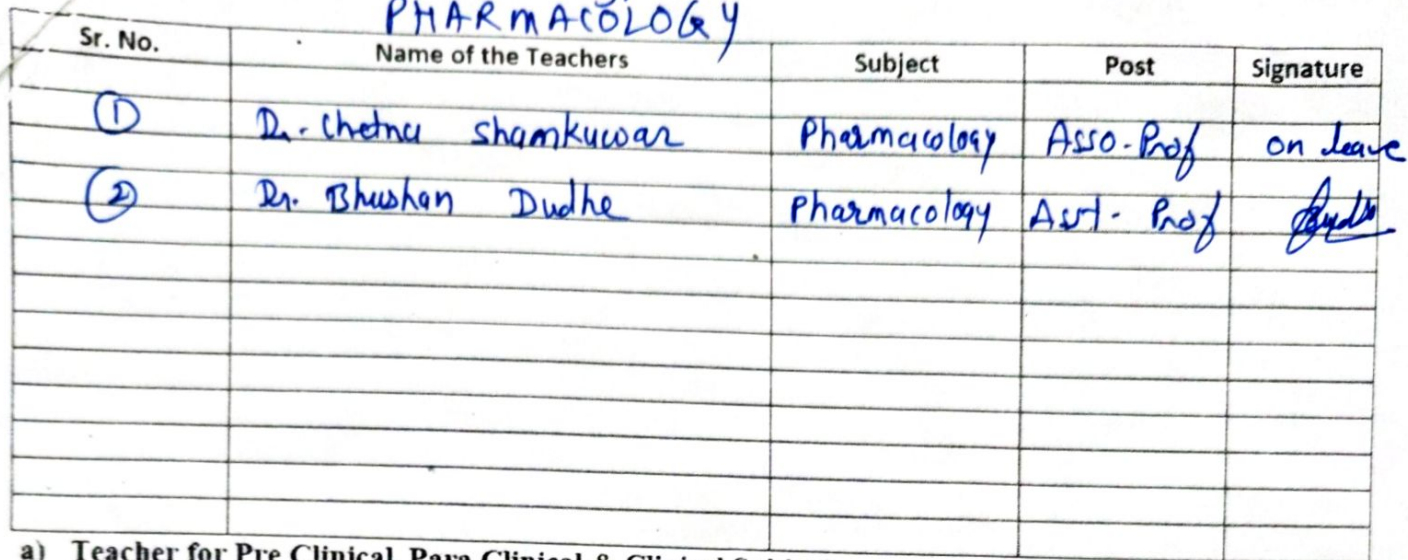 PHARMACOLOGY
Sr. No. Name of the Teachers Subject Post Signature
1 Dr. Chetna Shamkuwar Pharmacology Asso. Prof on leave
2 Dr. Bhushan Dudhe Pharmacology Asst. Prof
a) Teacher for Pre Clinical, Para Clinical & Clinical